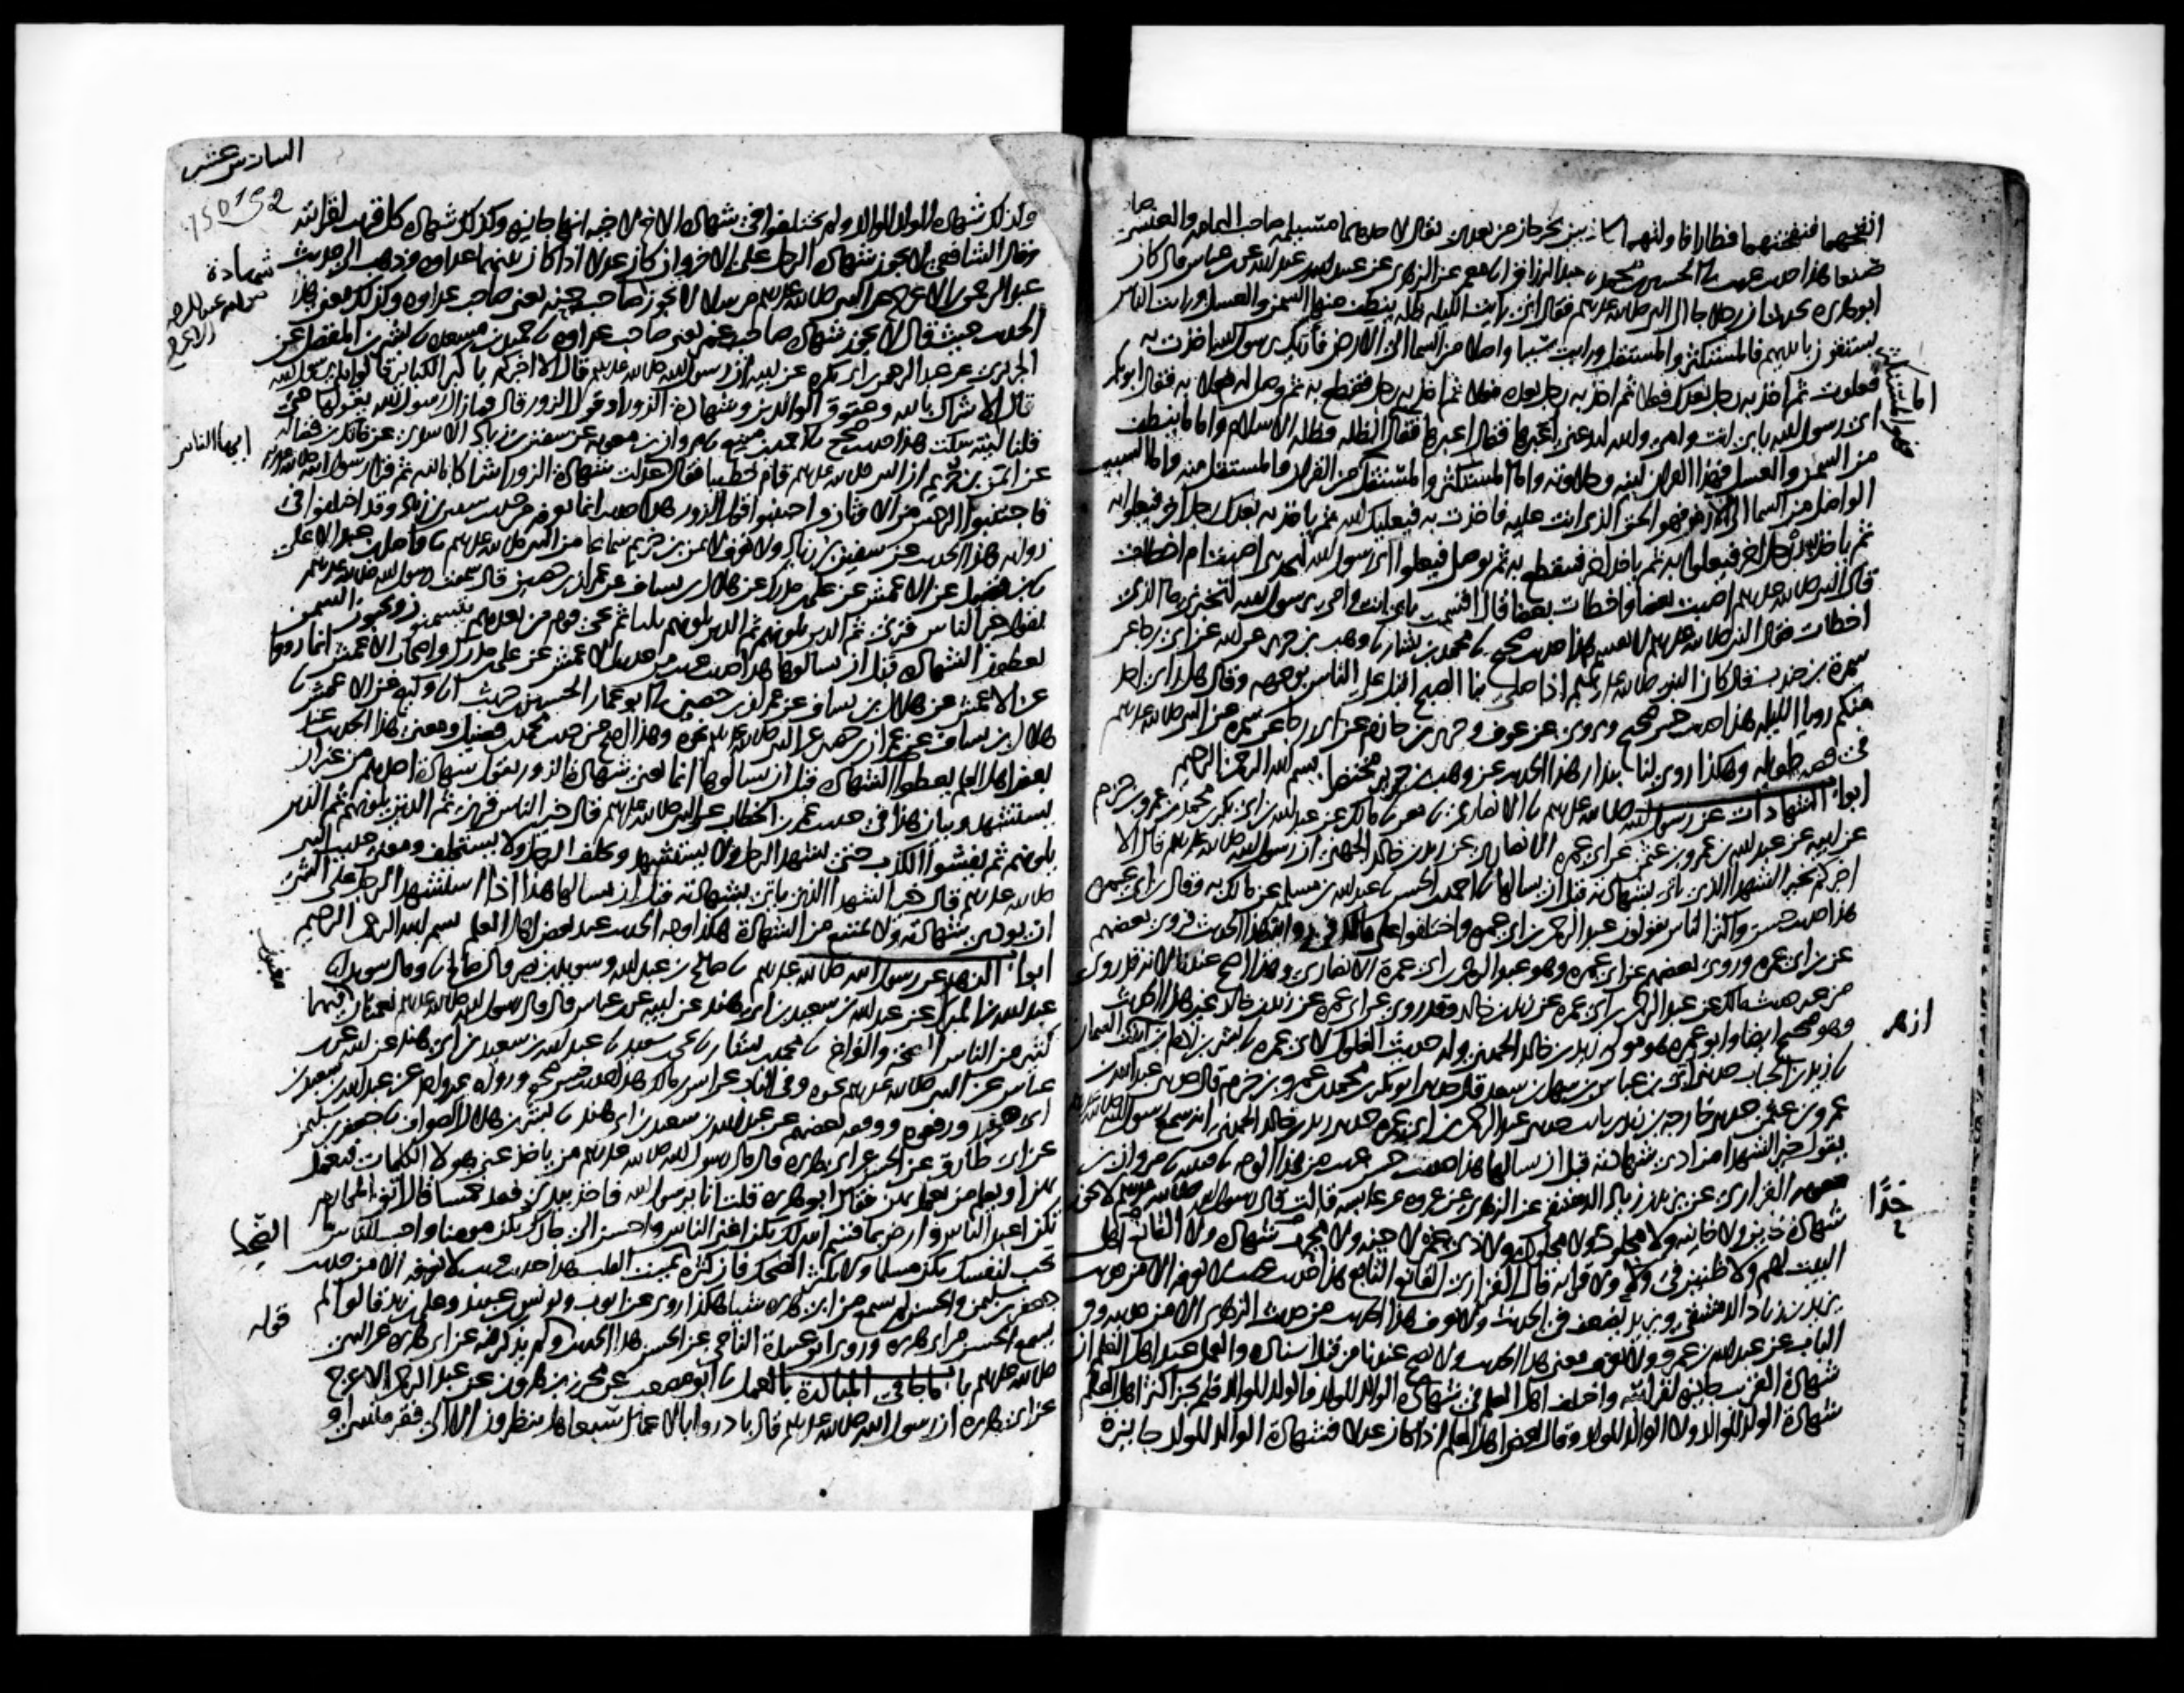 انفخهما فنفختهما فطارا فاولتهما كاذبين يخرجان من بعدي يقال لاحدهما مسيلمة صاحب اليمامة والعنسي
صنعا هذا حديث غريب نا الحسين بن محمد نا عبد الرزاق انا معمر عن الزهري عن عبيد الله بن عبد الله عن ابن عباس قال كان
ابو هريرة يحدث ان رجلا جا الى النبي صلى الله عليه وسلم فقال اني رايت الليلة ظلة ينطف منها السمن والعسل ورايت الناس
يستقون بايديهم فالمستكثر والمستقل ورايت سببا واصلا من السما الى الارض فأراك يا رسول الله اخذت به
فعلوت ثم اخذ به رجل بعدك فعلا ثم اخذ به رجل بعده فعلا ثم اخذ به رجل فقطع به ثم وصل له فعلا به فقال ابو بكر
اي رسول الله بابي انت وامي والله لتدعني اعبرها فقال اعبرها فقال اما الظلة فظلة الاسلام واما ما ينطف
من السمن والعسل فهذا القران لينه وحلاوته واما المستكثر والمستقل فالمستكثر من القران والمستقل منه واما السبب
الواصل من السما الى الارض فهو الحق الذي انت عليه فاخذت به فيعليك الله ثم ياخذ به بعدك رجل اخر فيعلوا به
ثم ياخذ به رجل اخر فيعلوا به ثم ياخذ اخر فينقطع به ثم يوصل فيعلوا اي رسول الله لتحدثني اصبت ام اخطات
قال النبي صلى الله عليه وسلم اصبت بعضا واخطات بعضا قال اقسمت بابي انت وامي يرسول الله لتخبرني ما الذي
اخطات فقال النبي صلى الله عليه وسلم لا تقسم هذا حديث صحيح نا محمد بن بشار نا وهب بن جرير عن ابيه عن ابي رجا عن
سمرة بن جندب قال كان النبي صلى الله عليه وسلم اذا صلى بنا الصبح اقبل على الناس بوجهه وقال هل راى احد
منكم رويا الليلة هذا حديث حسن صحيح ويروى عن عوف وجرير بن حازم عن ابي رجا عن سمرة عن النبي صلى الله عليه وسلم
في قصة طويلة وهكذا روى لنا بندار هذا الحديث عن وهب بن جرير مختصرا بسم الله الرحمن الرحيم
ابواب الشهادات عن رسول الله صلى الله عليه وسلم نا الانصاري نا معن نا مالك عن عبد الله بن ابي بكر بن محمد بن عمرو بن حزم
عن ابيه عن عبد الله بن عمرو بن عثمن عن ابي عمرة الانصاري عن زيد بن خالد الجهني ان رسول الله صلى الله عليه وسلم قال الا
اخبركم بخير الشهدا الذي ياتي بشهادته قبل ان يسالها نا احمد بن الحسن نا عبد الله بن مسلمة عن مالك به وقال ابن ابي عمرة
هذا حديث حسن واكثر الناس يقولون عبد الرحمن بن ابي عمرة واختلفوا على مالك في رواية هذا الحديث فروى بعضهم
عن ابي عمرة وروى بعضهم عن ابن ابي عمرة وهو عبد الرحمن بن ابي عمرة الانصاري وهذا اصح عندنا لانه قد روي
من غير حديث مالك عن عبد الرحمن بن ابي عمرة عن زيد بن خالد وقد روي عن ابن ابي عمرة عن زيد بن خالد غير هذا الحديث
وهو صحيح ايضا وابو عمرة هو مولى زيد بن خالد الجهني وله حديث الغلول لابي عمرة نا بشر بن ادم ابن ابنة ازهر السمان
نا زيد بن الحباب حدثني ابي بن عباس بن سهل بن سعد قال حدثني ابو بكر بن محمد بن عمرو بن حزم قال حدثني عبد الله بن
عمرو بن عثمن حدثني خارجة بن زيد بن ثابت حدثني عبد الرحمن بن ابي عمرة حدثني زيد بن خالد الجهني انه سمع رسول الله صلى الله عليه وسلم
يقول خير الشهدا من ادى شهادته قبل ان يسالها هذا حديث حسن غريب من هذا الوجه نا قتيبة نا مروان بن
معوية الفزاري عن يزيد بن زياد الدمشقي عن الزهري عن عروة عن عايشة قالت قال رسول الله صلى الله عليه وسلم لا تجوز
شهادة خاين ولا خاينة ولا مجلود ولا مجلودة ولا ذي غمر لاحنة ولا مجرب شهادة ولا القانع اهل
البيت لهم ولا ظنين في ولا ولا قرابة قال الفزاري القانع التابع هذا حديث غريب لا نعرفه الا من حديث
يزيد بن زياد الدمشقي ويزيد يضعف في الحديث ولا نعرف هذا الحديث من حديث الزهري الا من حديثه وفي
الباب عن عبد الله بن عمرو ولا نعرف معنى هذا الحديث ولا يصح عندنا من قبل اسناده والعمل عند اهل العلم ان
شهادة القريب جايزة لقرابته واختلف اهل العلم في شهادة الوالد للولد والولد للوالد فلم يجز اكثر اهل العلم
شهادة الولد للوالد ولا الوالد للولد وقال بعض اهل العلم اذا كان عدلا فشهادة الوالد للولد جايزة
اما
فهو المستكثر
ازهر
حدًّا
السادس عشر
152
وكذلك شهادة الولد للوالد ولم يختلفوا في شهادة الاخ لاخيه انها جايزة وكذلك شهادة كل قريب لقرابته
وقال الشافعي لا تجوز شهادة الرجل على الاخر وان كان عدلا اذا كان بينهما عداوة وذهب الى حديث
عبد الرحمن الاعرج عن النبي صلى الله عليه وسلم مرسلا لا تجوز شهادة صاحب حنة يعني صاحب عداوة وكذلك معنى هذا
الحديث حيث قال لا تجوز شهادة صاحب غمر يعني صاحب عداوة نا حميد بن مسعدة نا بشر بن المفضل عن
الجريري عن عبد الرحمن بن ابي بكرة عن ابيه ان رسول الله صلى الله عليه وسلم قال الا اخبركم باكبر الكباير قالوا بلى يرسول الله
قال الاشراك بالله وعقوق الوالدين وشهادة الزور او قول الزور قال فما زال رسول الله يقولها حتى
قلنا ليته سكت هذا حديث صحيح نا احمد بن منيع نا مروان بن معوية عن سفين بن زياد الاسدي عن فاتك بن فضالة
عن ايمن بن خريم ان النبي صلى الله عليه وسلم قام خطيبا فقال عدلت شهادة الزور اشراكا بالله ثم قرا رسول الله صلى الله عليه وسلم
فاجتنبوا الرجس من الاوثان واجتنبوا قول الزور هذا حديث انما نعرفه من حديث سفين بن زياد وقد اختلفوا في
رواية هذا الحديث عن سفين بن زياد ولا نعرف لايمن بن خريم سماعا من النبي صلى الله عليه وسلم نا واصل بن عبد الاعلى
نا بن فضيل عن الاعمش عن علي بن مدرك عن هلال بن يساف عن عمران بن حصين قال سمعت رسول الله صلى الله عليه وسلم
يقول خير الناس قرني ثم الذين يلونهم ثم الذين يلونهم ثلثا ثم يجي قوم من بعدهم يتسمنون ويحبون السمن
يعطون الشهادة قبل ان يسالوها هذا حديث غريب من حديث الاعمش عن علي بن مدرك واصحاب الاعمش انما رووا
عن الاعمش عن هلال بن يساف عن عمران بن حصين نا ابو عمار الحسين بن حريث انا وكيع عن الاعمش نا
هلال بن يساف عن عمران بن حصين عن النبي صلى الله عليه وسلم نحوه وهذا اصح من حديث محمد بن فضيل ومعنى هذا الحديث عند
بعض اهل العلم يعطون الشهادة قبل ان يسالوها انما يعني شهادة الزور يقول شهادة احدهم من غير ان
يستشهد وبيان هذا في حديث عمر بن الخطاب عن النبي صلى الله عليه وسلم قال خير الناس قرني ثم الذين يلونهم ثم الذين
يلونهم ثم يفشوا الكذب حتى يشهد الرجل ولا يستشهد ويحلف الرجل ولا يستحلف ومعنى حديث النبي
صلى الله عليه وسلم قال خير الشهدا الذي ياتي بشهادته قبل ان يسالها هذا اذا استشهد الرجل على الشي
ان يودي شهادته ولا يمتنع من الشهادة هكذا وجه الحديث عند بعض اهل العلم بسم الله الرحمن الرحيم
ابواب الزهد عن رسول الله صلى الله عليه وسلم نا صالح بن عبد الله وسويد بن نصر قال صالح نا وقال سويد انا
عبد الله بن المبارك عن عبد الله بن سعيد بن ابي هند عن ابيه عن ابن عباس قال قال رسول الله صلى الله عليه وسلم نعمتان فيهما
كثير من الناس الصحة والفراغ نا محمد بن بشار نا يحيى بن سعيد نا عبد الله بن سعيد بن ابي هند عن ابيه عن ابن
عباس عن النبي صلى الله عليه وسلم نحوه وفي الباب عن انس بن مالك هذا حديث حسن صحيح ورواه غير واحد عن عبد الله بن سعيد بن
ابي هند ورفعوه ووقفه بعضهم عن عبد الله بن سعيد بن ابي هند نا بشر بن هلال الصواف نا جعفر بن سليمن
عن ابي طارق عن الحسن عن ابي هريرة قال قال رسول الله صلى الله عليه وسلم من ياخذ عني هولا الكلمات فيعمل
بهن او يعلم من يعمل بهن فقال ابو هريرة قلت انا يرسول الله فاخذ بيدي فعد خمسا قال اتق المحارم
تكن اعبد الناس وارض بما قسم الله لك تكن اغنى الناس واحسن الى جارك تكن مومنا واحب للناس ما
تحب لنفسك تكن مسلما ولا تكثر الضحك فان كثرة تميت القلب هذا حديث غريب لا نعرفه الا من حديث
جعفر بن سليمن والحسن لم يسمع من ابي هريرة شيا هكذا روي عن ايوب ويونس بن عبيد وعلي بن زيد قالوا لم
يسمع الحسن من ابي هريرة وروى ابو عبيدة الناجي عن الحسن هذا الحديث ولم يذكر فيه عن ابي هريرة عن النبي
صلى الله عليه وسلم باب ما جا في المبادرة بالعمل نا ابو مصعب عن محرز بن هرون عن عبد الرحمن الاعرج
عن ابي هريرة ان رسول الله صلى الله عليه وسلم قال بادروا بالاعمال سبعا هل ينظرون الا الى فقر منسي او
شهادة
ايها الناس
مغبون
الضحك
قوله